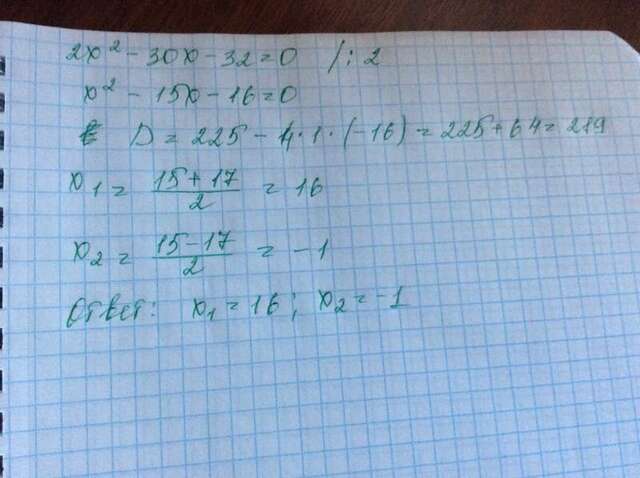 2x² - 30x - 32 = 0 /: 2
x² - 15x - 16 = 0
D = 225 - 4·1·(-16) = 225 + 64 = 219
x₁ = (15 + 17)/2 = 16
x₂ = (15 - 17)/2 = -1
Ответ: x₁ = 16; x₂ = -1